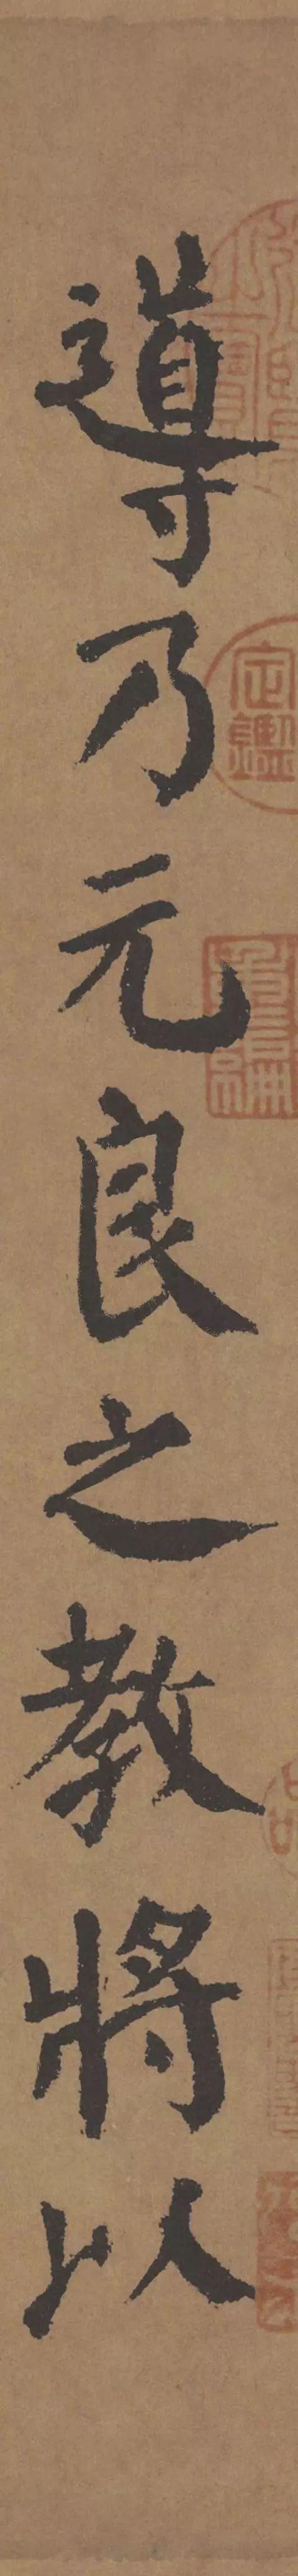 導乃元良之教將以